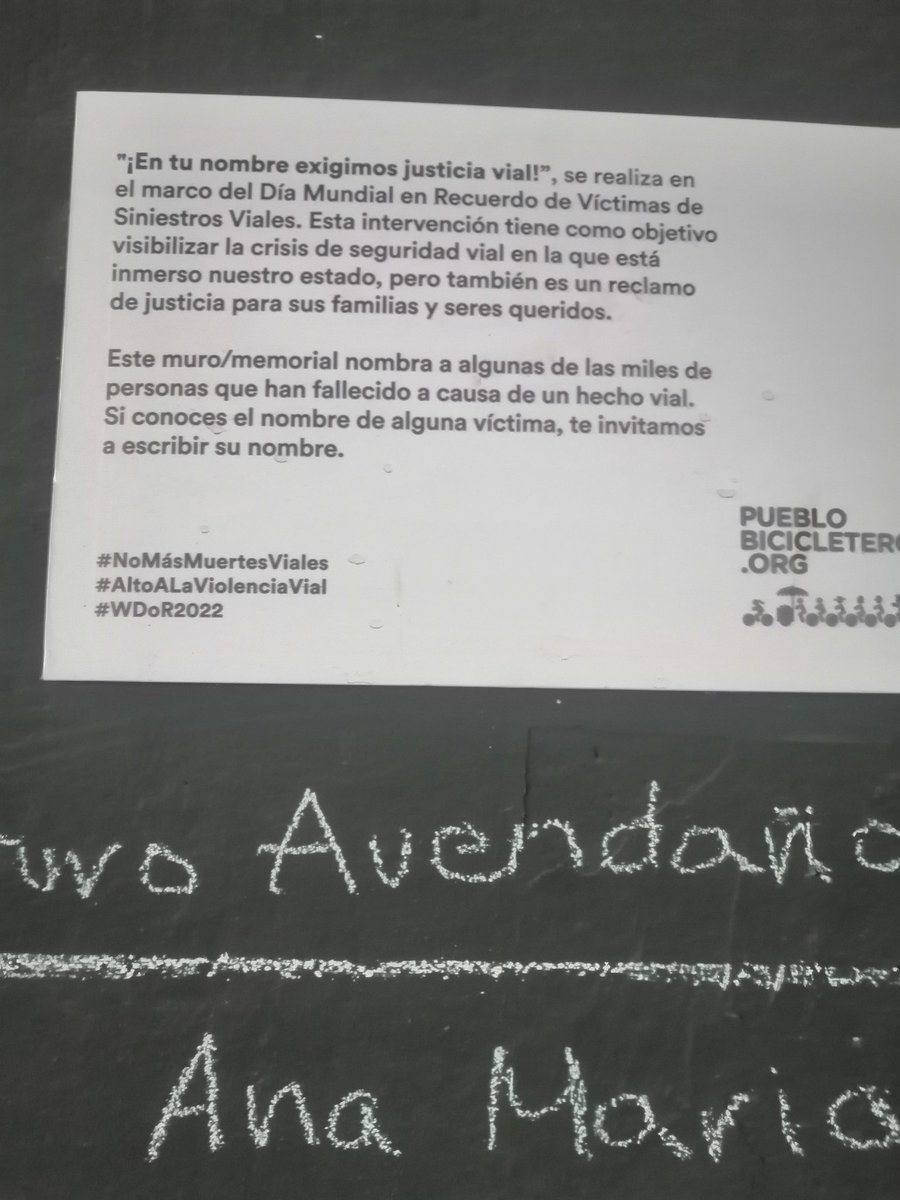 "¡En tu nombre exigimos justicia vial!", se realiza en
el marco del Día Mundial en Recuerdo de Víctimas de
Siniestros Viales. Esta intervención tiene como objetivo
visibilizar la crisis de seguridad vial en la que está
inmerso nuestro estado, pero también es un reclamo
de justicia para sus familias y seres queridos.
Este muro/memorial nombra a algunas de las miles de
personas que han fallecido a causa de un hecho vial.
Si conoces el nombre de alguna víctima, te invitamos
a escribir su nombre.
#NoMásMuertesViales
#AltoALaViolenciaVial
#WDoR2022
PUEBLO
BICICLETERO
.ORG
Avendaño
Ana Maria